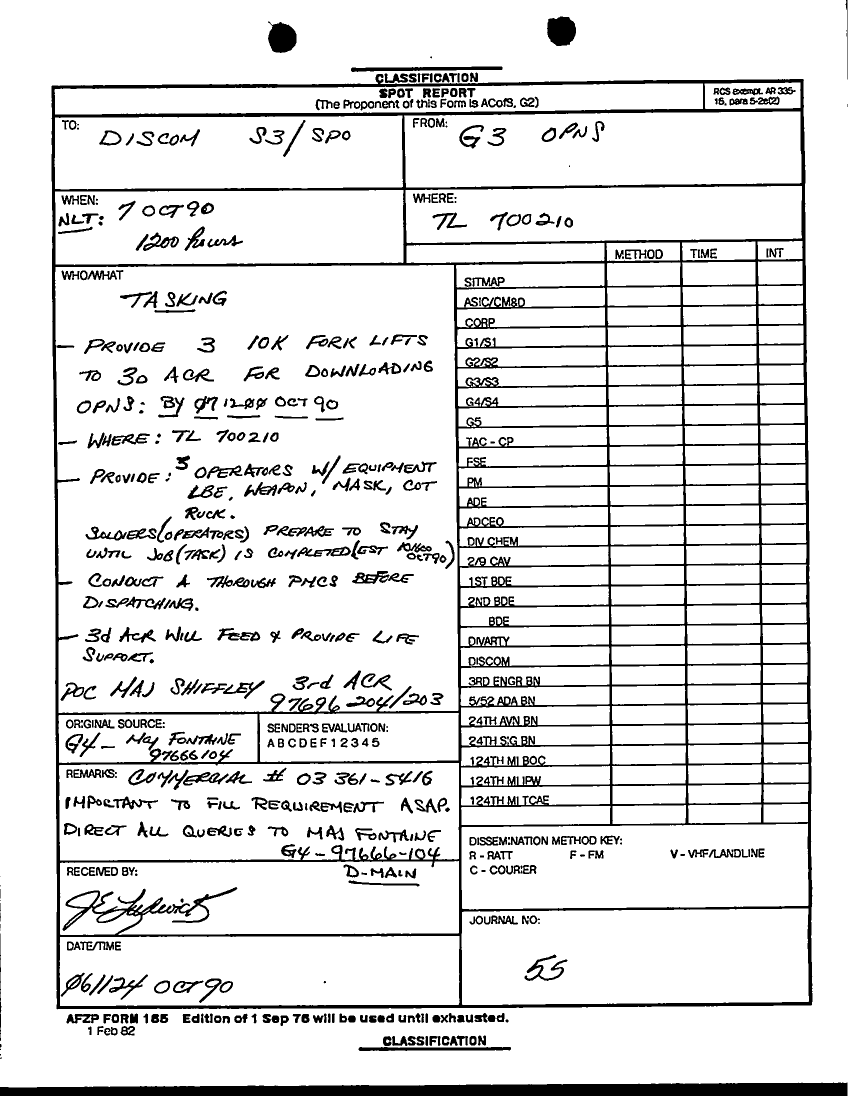 CLASSIFICATION
SPOT REPORT
(The Proponent of this Form is ACofS, G2)
RCS exempt. AR 335-
15, para 5-2e(2)
TO: DISCOM S3/SPO
FROM: G3 OPNS
WHEN: 7 OCT 90
NLT:
1200 hours
WHERE:
TL 700210
METHOD TIME INT
WHO/WHAT
TASKING
- PROVIDE 3 10K FORK LIFTS
TO 3D ACR FOR DOWNLOADING
OPNS: BY Ø7 12ØØ OCT 90
- WHERE: TL 700210
- PROVIDE: 3 OPERATORS W/ EQUIPMENT
LBE, WEAPON, MASK, COT
RUCK.
SOLDIERS (OPERATORS) PREPARE TO STAY
UNTIL JOB (TASK) IS COMPLETED (EST 101600
OCT 90)
- CONDUCT A THOROUGH PMCS BEFORE
DISPATCHING.
- 3d ACR WILL FEED & PROVIDE LIFE
SUPPORT.
POC MAJ SHIFFLEY 3rd ACR
97696-204/203
SITMAP
ASIC/CM&D
CORP
G1/S1
G2/S2
G3/S3
G4/S4
G5
TAC - CP
FSE
PM
ADE
ADCEO
DIV CHEM
2/9 CAV
1ST BDE
2ND BDE
BDE
DIVARTY
DISCOM
3RD ENGR BN
5/52 ADA BN
24TH AVN BN
24TH SIG BN
124TH MI BOC
124TH MI IPW
124TH MI TCAE
ORIGINAL SOURCE:
G4 - MAJ FONTAINE
97666104
SENDER'S EVALUATION:
A B C D E F 1 2 3 4 5
REMARKS: COMMERCIAL # 03 361-5416
IMPORTANT TO FILL REQUIREMENT ASAP.
DIRECT ALL QUERIES TO MAJ FONTAINE
G4-97666-104
D-MAIN
DISSEMINATION METHOD KEY:
R - RATT F - FM V - VHF/LANDLINE
C - COURIER
RECEIVED BY:
JOURNAL NO:
55
DATE/TIME
Ø61124 OCT 90
AFZP FORM 165 Edition of 1 Sep 76 will be used until exhausted.
1 Feb 82
CLASSIFICATION